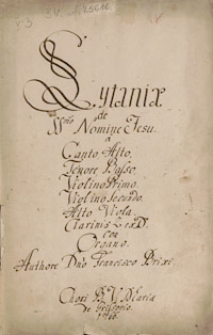 Lytaniæ
de
Nomine Jesu.
a
Canto Alto.
Tenore Basso.
Violino Primo.
Violino Secondo.
Alto Viola
Clarinis 2 ex D.
con
Organo.
Authore Dno Francesco Brixi.
Chori B. V. Maria